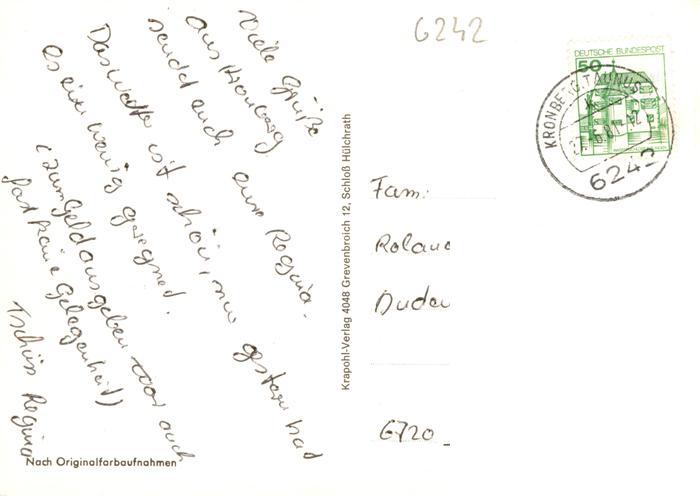 Viele Grüße
aus Kronberg
sendet euch eure Regina.
Das Wetter ist schön, nur gestern hat
es ein wenig geregnet.
(zum Geldausgeben war auch
fast keine Gelegenheit)
Tschüss Regina
Nach Originalfarbaufnahmen
Krapohl-Verlag 4048 Grevenbroich 12, Schloß Hülchrath
6242
DEUTSCHE BUNDESPOST
50
KRONBERG, TAUNUS
6242
Fam:
Roland
6720